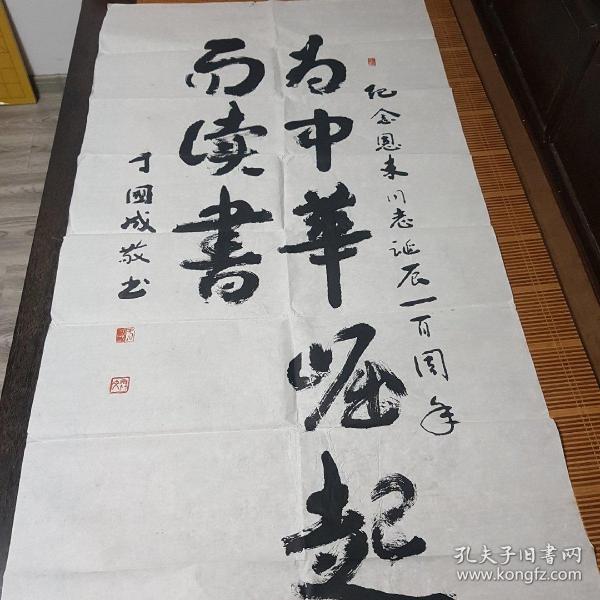 纪念恩来同志诞辰一百周年
为中华崛起
而读書
于國成敬书
孔夫子旧書网
www.kongfz.com